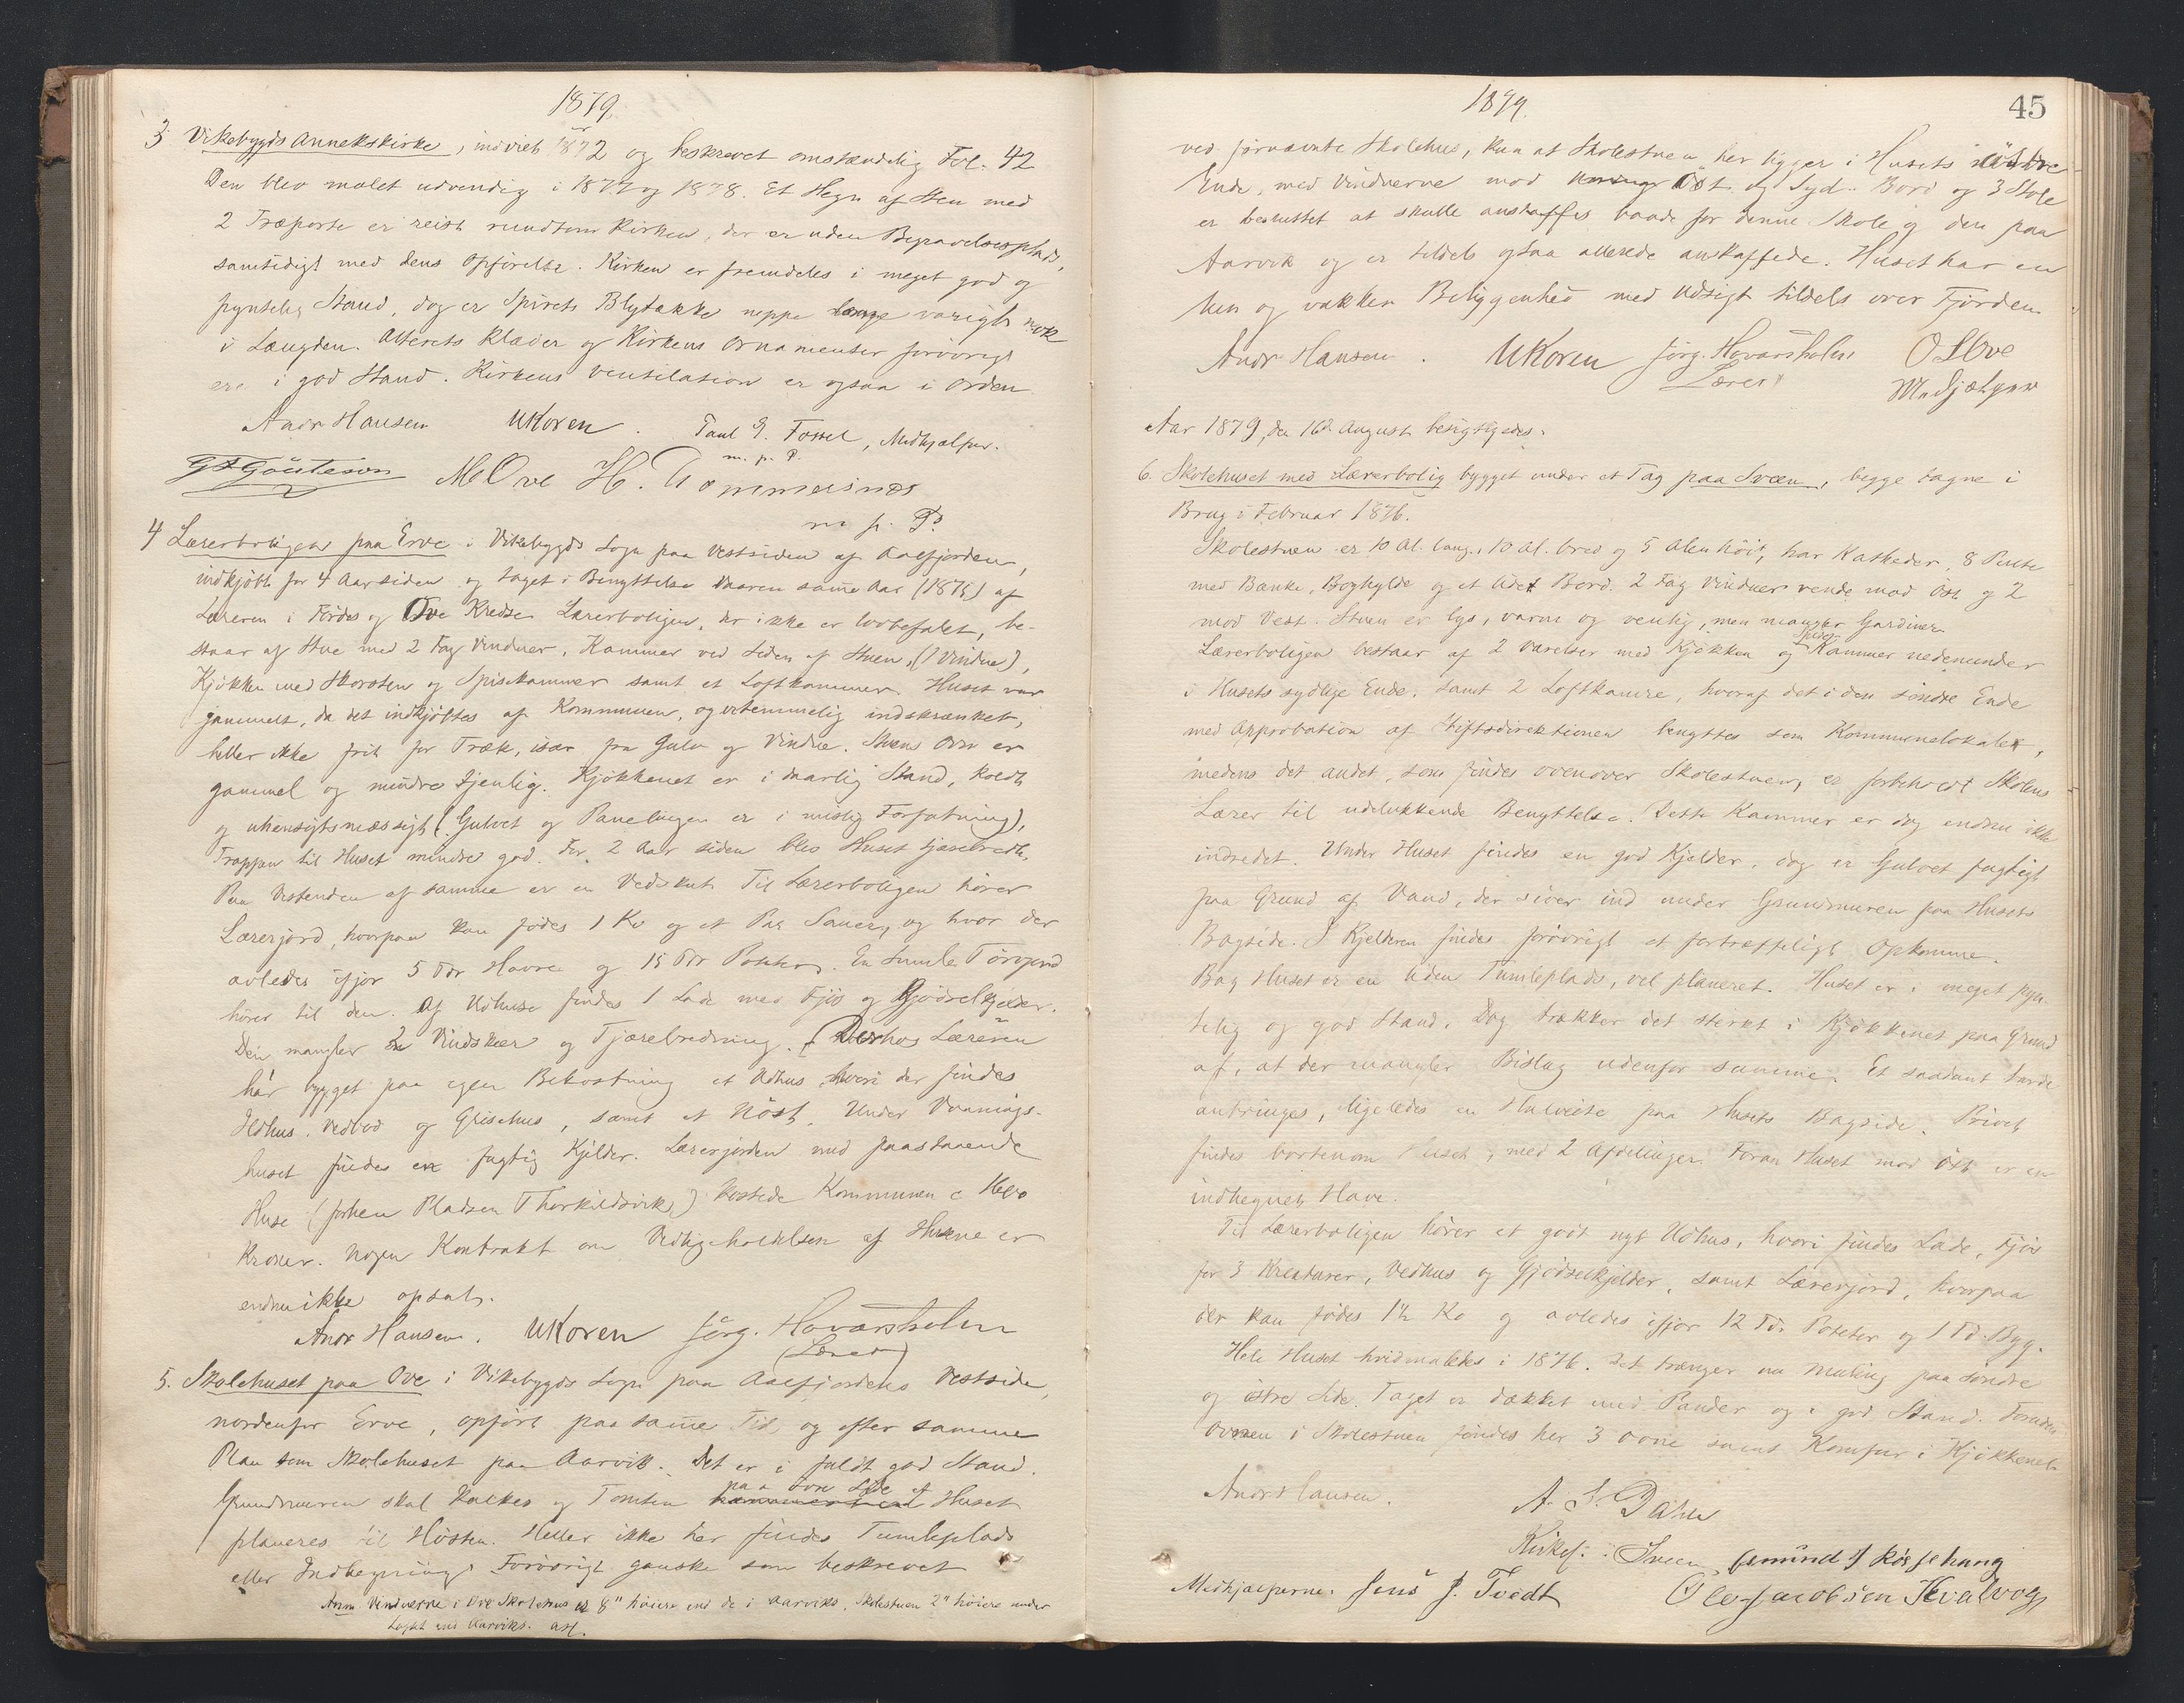 1879.
3 Vikebygds Annekskirke, indviet 1872 og beskrevet omstændelig Fol. 42
Den blev malet udvendig i 1877 og 1878. Et Hegn af Sten med
2 Træporte er reist rundtom Kirken, der er uden Begravelsesplads,
samtidigt med dens Opførelse. Kirken er fremdeles i meget god og
pyntelig Stand, dog er Spirets Blytække neppe varigt nok
i Længden. Alterets Klæder og Kirkens Ornamenter forøvrigt
ere i god Stand. Kirkens Ventilation er ogsaa i Orden
Andr Hansen UKoren. Paul G. Tossel, Medhjælper.
m. p. P.
G T Gøutesen M Ove H. Tommersnæs
m p. P.
4 Lærerboligen paa Erve i Vikebygds Sogn paa Vestsiden af Aalfjorden,
indkjøbt for 4 Aar siden og taget i Benyttelse Vaaren samme Aar (1875) af
Læreren i Førdes og Ove Kredse. Lærerboligen, der ikke er lovbefalet, be-
staar af Stue med 2 Fag Vinduer, Kammer ved Siden af Stuen, (1 Vindue),
Kjøkken med Skorsten og Spisekammer samt et Loftkammer. Huset var
gammelt, da det indkjøbtes af Kommunen, og er temmelig indskrænket,
heller ikke frit for Træk, især fra Gulv og Vindue. Stuens Ovn er
gammel og mindre tjenlig. Kjøkkenet er i daarlig Stand, koldt
og uhensigtsmæssigt (Gulvet og Panelingen er i mislig Forfatning),
Trappen til Huset mindre god. For 2 Aar siden blev Huset tjærebredt.
Paa Vestenden af samme er en Vedskut. Til Lærerboligen hører
Lærerjord, hvorpaa kan fødes 1 Ko og et Par Sauer, og hvor der
avledes ifjor 5 Tdr Havre og 15 Tdr Poteter. En Smule Torvjord
hører til den. Af Udhuse findes 1 Lade med Fjøs og Gjødselkjelder.
Den mangler 2 Vindskeer og Tjærebredning. Derhos Læreren
har bygget paa egen Bekostning et Udhus, hvori der findes
Ildhus, Vedbod og Grisehus, samt et Nøst. Under Vaanings-
huset findes en fugtig Kjelder. Lærerjorden med paastaaende
Huse (forhen Pladsen Thorkildsvik) kostede Kommunen c 1600
Kroner. Nogen Kontrakt om Vedligeholdelsen af Husene er
endnu ikke opsat.
Andr Hansen. UKoren Jørg. Hovarsholm
(Lærer)
5. Skolehuset paa Ove i Vikebygds Sogn paa Aalfjordens Vestside,
nordenfor Erve, opført paa samme Tid og efter samme
Plan som Skolehuset paa Aarvik. Det er i fuldt god Stand.
Grundmuren skal kalkes og Tomten paa Siden af Huset
planeres til Høsten. Heller ikke her findes Tumleplads
eller Indhegning. Forøvrigt ganske som beskrevet
Anm. Vinduerne i Ove Skolehus er 8" høiere end de i Aarviks, Skolestuen 2" høiere under
Loftet end Aarviks. AH.
1879.
45
ved førnævnte Skolehus, kun at Skolestuen her ligger i Husets østre
Ende, med Vinduerne mod Øst og Syd. Bord og 3 Stole
er besluttet at skulle anskaffes baade for denne Skole og den paa
Aarvik og er tildels ogsaa allerede anskaffede. Huset har en
lun og vakker Beliggenhed med Udsigt tildels over Fjorden.
Andr Hansen. UKoren Jørg. Hovarsholm O S Ove
Lærer Medhjælper
Aar 1879, den 16de August besigtigedes:
6. Skolehuset med Lærerbolig bygget under et Tag paa Sveen, begge tagne i
Brug i Februar 1876.
Skolestuen er 10 Al. lang, 10 Al. bred og 5 Alen høit, har Katheder, 8 Pulte
med Bænke, Boghylde og et lidet Bord. 2 Fag Vinduer vende mod Øst og 2
mod Vest. Stuen er lys, varm og venlig, men mangler Gardiner.
Lærerboligen bestaar af 2 Værelser med Kjøkken og Spise Kammer nedenunder
i Husets sydlige Ende, samt 2 Loftkamre, hvoraf det i den søndre Ende
med Approbation af Stiftsdirektionen benyttes som Kommunelokale,
medens det andet, som findes ovenover Skolestuen, er forbeholdt Skolens
Lærer til udelukkende Benyttelse. Dette Kammer er dog endnu ikke
indredet. Under Huset findes en god Kjelder, dog er Gulvet fugtigt
paa Grund af Vand, der siver ind under Grundmuren paa Husets
Bagside. I Kjelderen findes forøvrigt et fortræffeligt Opkomme.
Bag Huset er en liden Tumleplads, vel planeret. Huset er i meget pyn-
telig og god Stand. Dog trækker det stærkt i Kjøkkenet paa Grund
af, at der mangler Bislag udenfor samme. Et saadant burde
anbringes, ligeledes en Halveite paa Husets Bagside. Privet
findes bortenom Huset, med 2 Afdelinger. Foran Huset mod Øst er en
indhegnet Have.
Til Lærerboligen hører et godt nyt Udhus, hvori findes Lade, Fjøs
for 3 Kreaturer, Vedhus og Gjødselkjelder, samt Lærerjord, hvorpaa
der kan fødes 1½ Ko og avledes ifjor 12 Tdr Poteter og 1 Td. Byg.
Hele Huset hvidmaledes i 1876. Det trænger nu Maling paa søndre
og østre Side. Taget er dækket med Pander og i god Stand. Foruden
Ovnen i Skolestuen findes her 3 Ovne samt Komfur i Kjøkkenet.
Andr Hansen. A. S. Dahle
Kirkes. Sveen
Medhjælperne: Jens J. Tvedt Ole Jacobsen Kvalvog